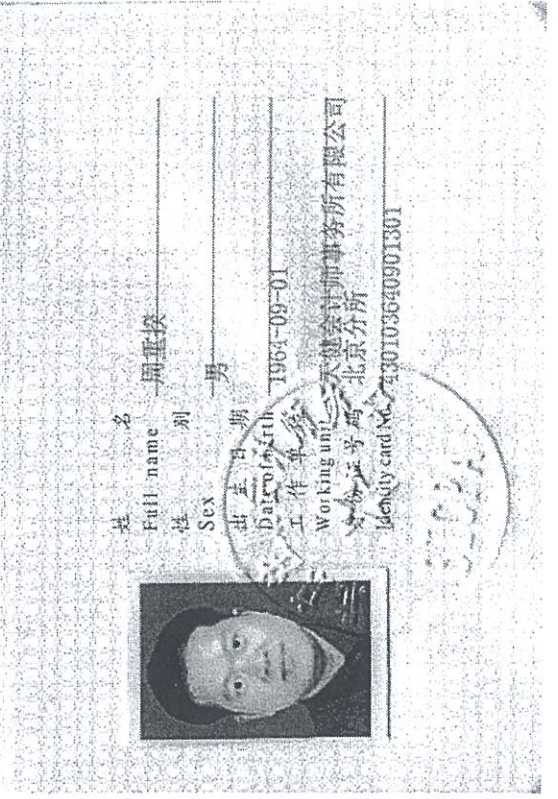 姓 名
Full name 周重揆
性 别
Sex 男
出 生 日 期
Date of birth 1964-09-01
工 作 单 位
Working unit 天健会计师事务所有限公司
北京分所
身 份 证 号 码
Identity card No. 430103640901301